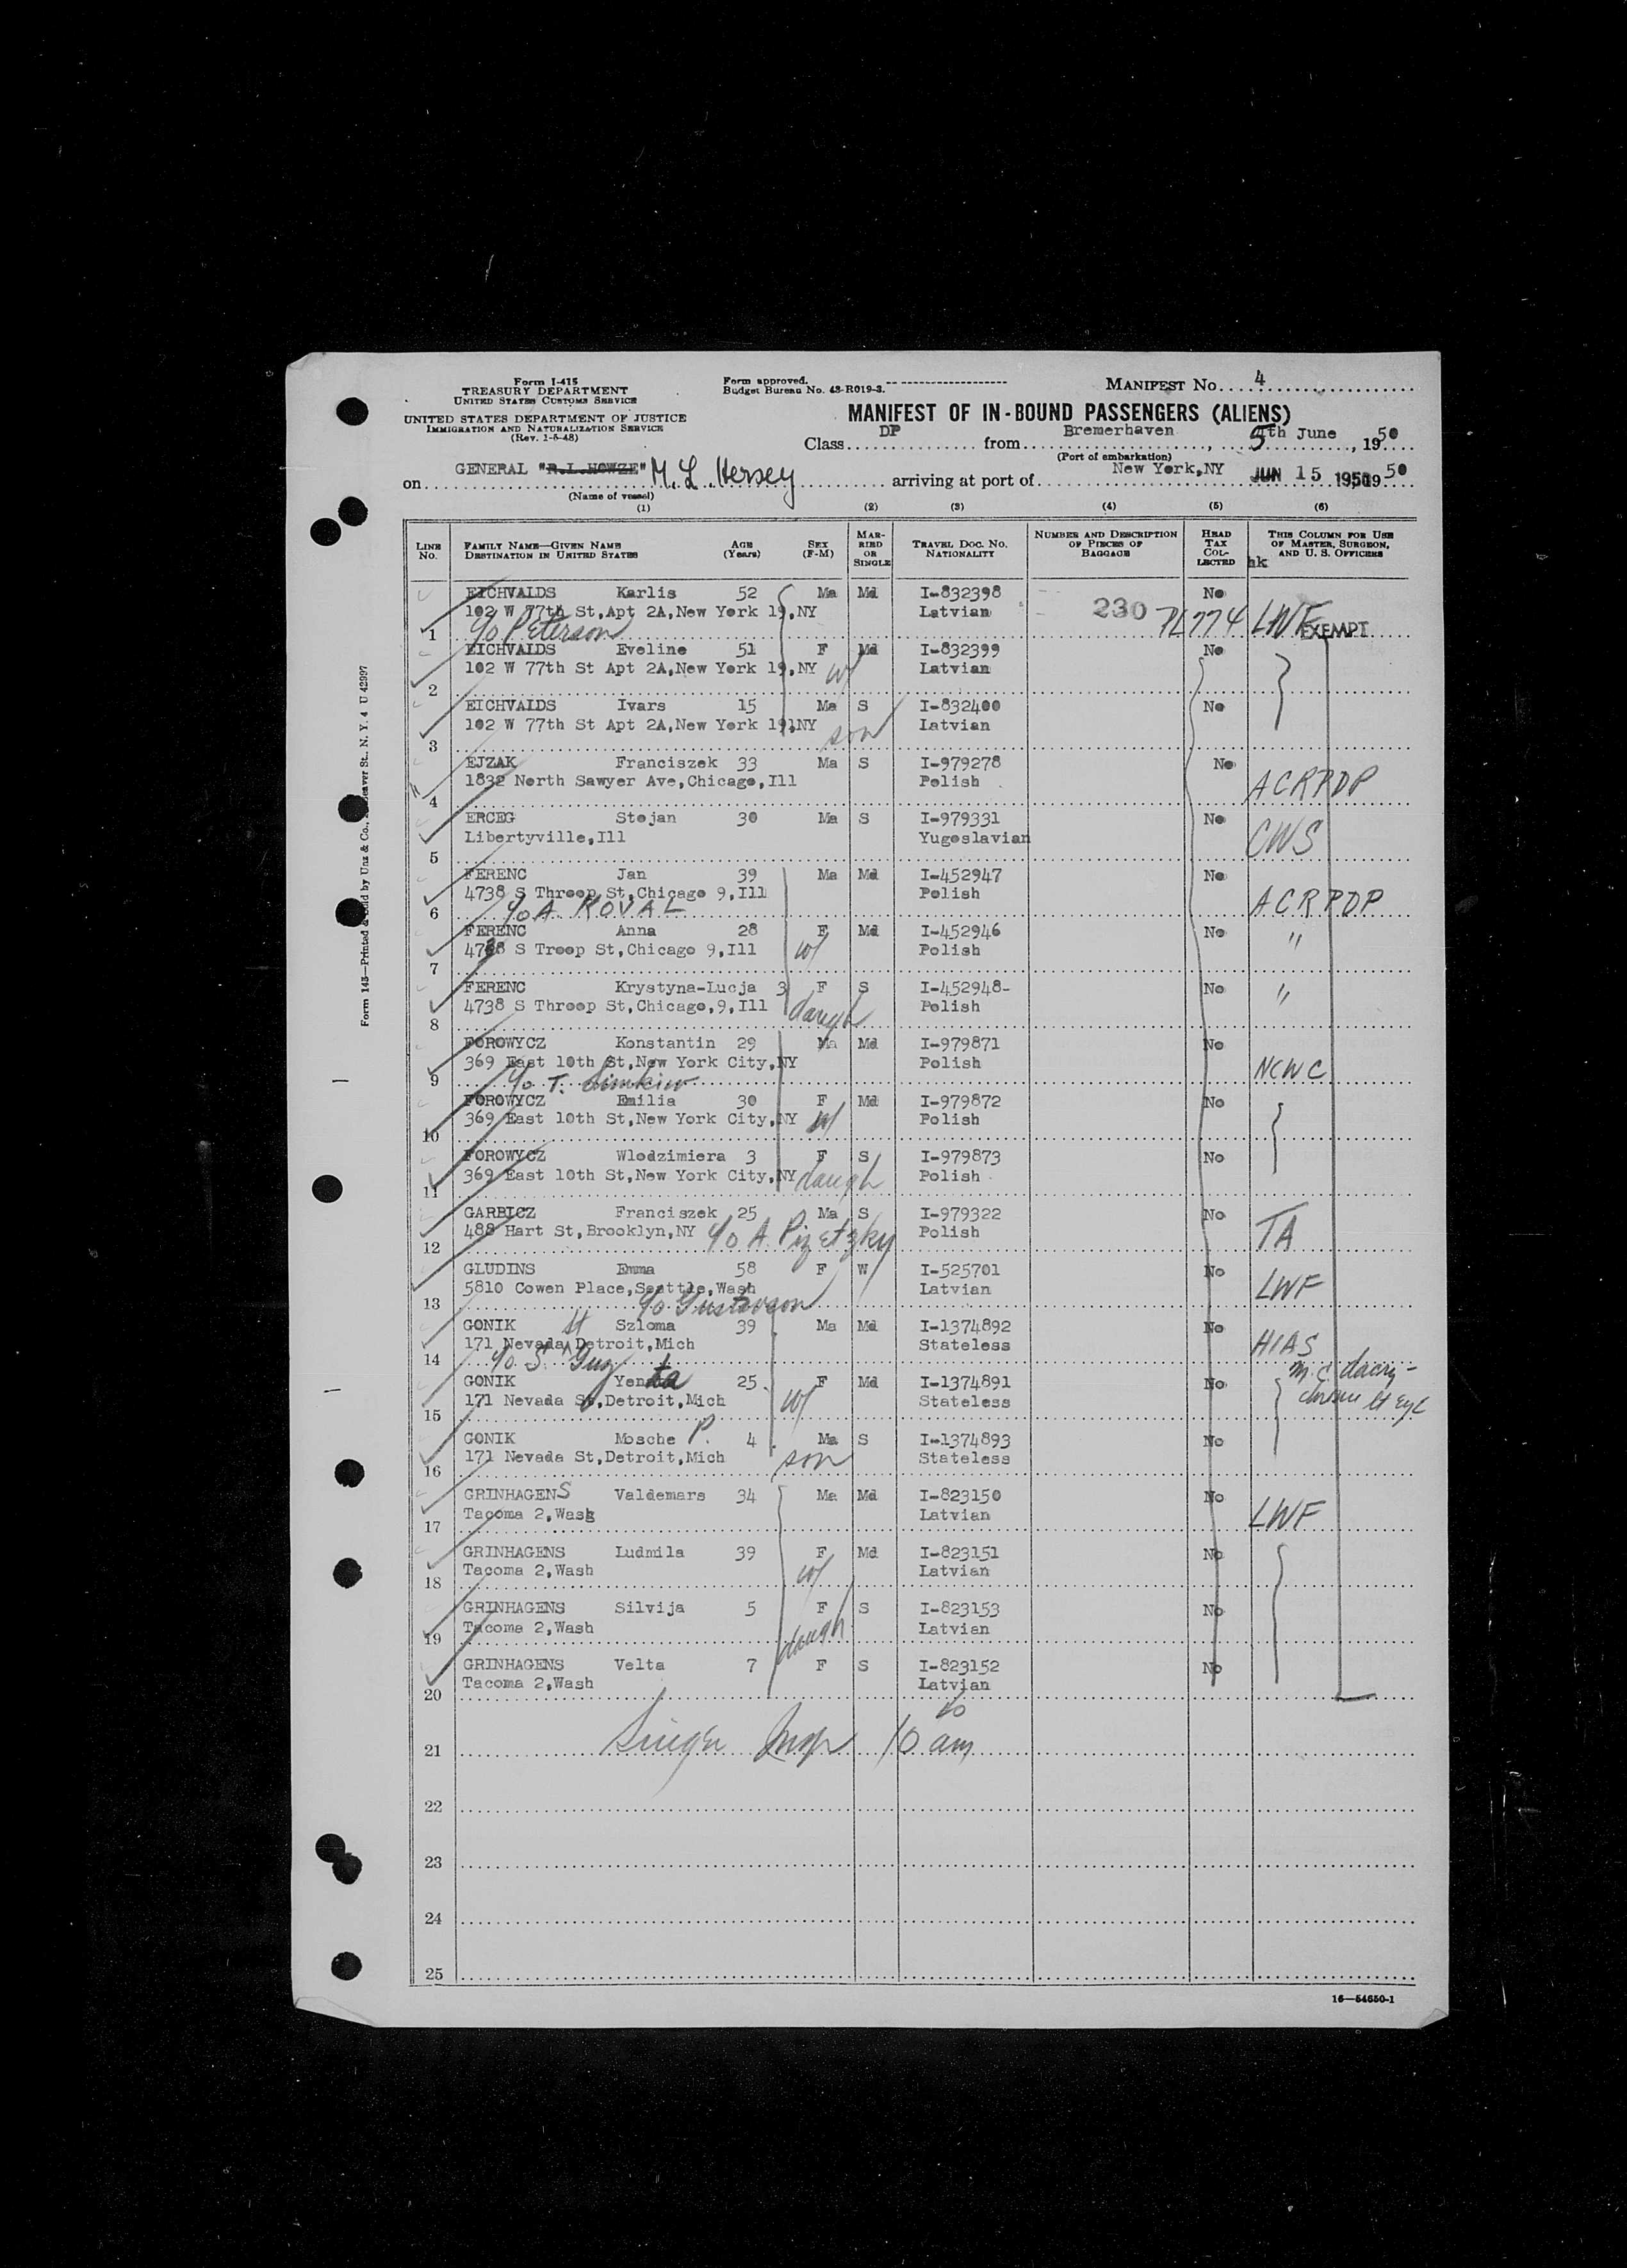 Form I-415
TREASURY DEPARTMENT
UNITED STATES CUSTOMS SERVICE
UNITED STATES DEPARTMENT OF JUSTICE
IMMIGRATION AND NATURALIZATION SERVICE
(Rev. 1-5-48)
Form approved.
Budget Bureau No. 43-R019-3.
MANIFEST No. 4
MANIFEST OF IN-BOUND PASSENGERS (ALIENS)
Class DP from Bremerhaven, 5th June, 1950
(Port of embarkation)
on GENERAL "R.L.HOWZE" M. L. Hersey arriving at port of New York,NY JUN 15 1950 1950
(Name of vessel)
(1) (2) (3) (4) (5) (6)
LINE No. FAMILY NAME—GIVEN NAME DESTINATION IN UNITED STATES AGE (Years) SEX (F-M) MARRIED OR SINGLE TRAVEL DOC. NO. NATIONALITY NUMBER AND DESCRIPTION OF PIECES OF BAGGAGE HEAD TAX COLLECTED THIS COLUMN FOR USE OF MASTER, SURGEON, AND U. S. OFFICERS
hk
EICHVALDS Karlis 52 Ma Md I-832398 No
102 W 77th St,Apt 2A,New York 19,NY Latvian 230 PL 774 LWF EXEMPT
1 c/o Peterson
EICHVALDS Eveline 51 F Md I-832399 No
102 W 77th St Apt 2A,New York 19,NY w/ Latvian
2
EICHVALDS Ivars 15 Ma S I-832400 No
102 W 77th St Apt 2A,New York 19,NY son Latvian
3
EJZAK Franciszek 33 Ma S I-979278 No
1832 North Sawyer Ave,Chicago,Ill Polish ACRPDP
4
ERCEG Stojan 30 Ma S I-979331 No
Libertyville,Ill Yugoslavian CWS
5
FERENC Jan 39 Ma Md I-452947 No
4738 S Throop St,Chicago 9,Ill Polish ACRPDP
6 c/o A KOVAL
FERENC Anna 28 F Md I-452946 No
4738 S Troop St,Chicago 9,Ill w/ Polish "
7
FERENC Krystyna-Lucja 3 F S I-452948- No
4738 S Throop St,Chicago,9,Ill daugh Polish "
8
FOROWYCZ Konstantin 29 Ma Md I-979871 No
369 East 10th St,New York City,NY Polish NCWC
9 c/o T.
FOROWYCZ Emilia 30 F Md I-979872 No
369 East 10th St,New York City,NY w/ Polish
10
FOROWYCZ Wlodzimiera 3 F S I-979873 No
369 East 10th St,New York City,NY daugh Polish
11
GARBICZ Franciszek 25 Ma S I-979322 No
488 Hart St,Brooklyn,NY c/o A. Pizetzky Polish TA
12
GLUDINS Emma 58 F W I-525701 No
5810 Cowen Place,Seattle,Wash Latvian LWF
13 c/o Gustavson
GONIK Szloma 39 Ma Md I-1374892 No
171 Nevada St Detroit,Mich Stateless HIAS
14 c/o S. Guz
GONIK Yenta 25 F Md I-1374891 No
171 Nevada St,Detroit,Mich w/ Stateless
15
GONIK Mosche P. 4 Ma S I-1374893 No
171 Nevada St,Detroit,Mich son Stateless
16
GRINHAGENS Valdemars 34 Ma Md I-823150 No
Tacoma 2,Wash Latvian LWF
17
GRINHAGENS Ludmila 39 F Md I-823151 No
Tacoma 2,Wash w/ Latvian
18
GRINHAGENS Silvija 5 F S I-823153 No
Tacoma 2,Wash daugh Latvian
19
GRINHAGENS Velta 7 F S I-823152 No
Tacoma 2,Wash Latvian
20
21 Singer Insp 10 am
22
23
24
25
16—54650-1